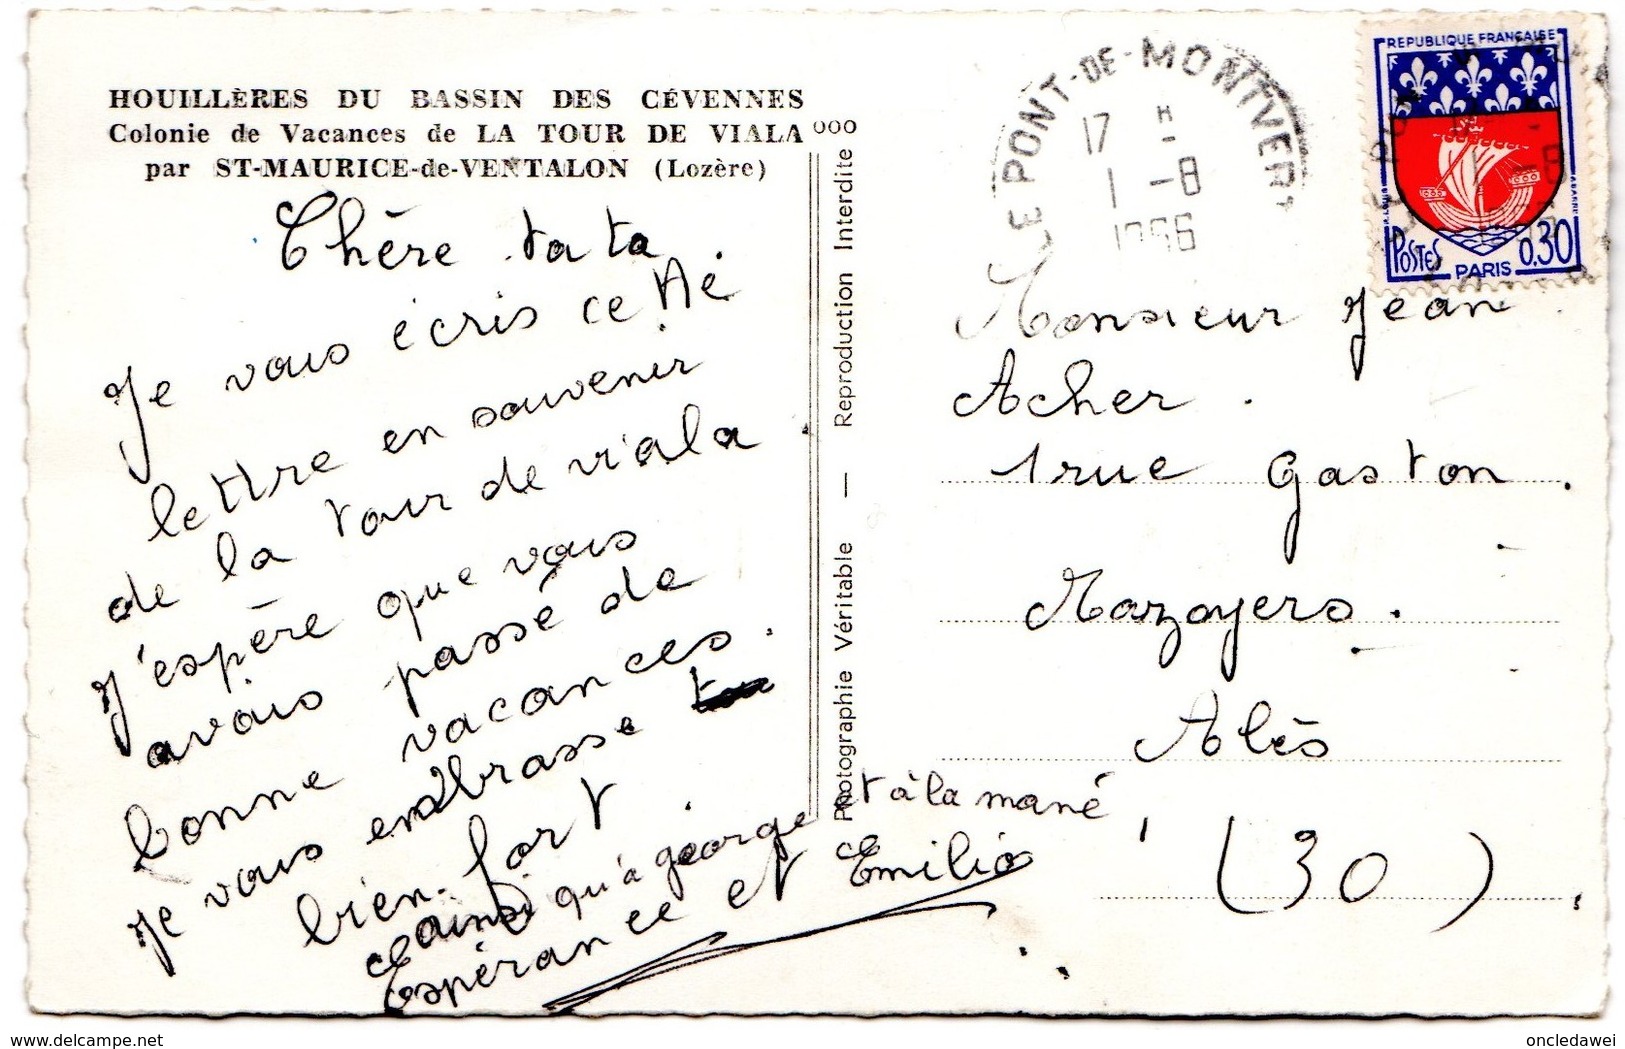 HOUILLÈRES DU BASSIN DES CÉVENNES
Colonie de Vacances de LA TOUR DE VIALA
par ST-MAURICE-de-VENTALON (Lozère)
Chère tata
Je vous écris cette
lettre en souvenir
de la tour de viala
J'espère que vous
avais passé de
bonne vacances.
Je vous enbrasse
bien fort
ainsi qu'à géorge et à la mané
Espérance et Emilio
Photographie Véritable — Reproduction Interdite
LE PONT-DE-MONTVERT
17 H
1 -8
1966
REPUBLIQUE FRANÇAISE
POSTES PARIS 0,30
Monsieur Jean
Acher.
1 rue Gaston.
Mazoyers.
Alès
(30)
delcampe.net
oncledawei